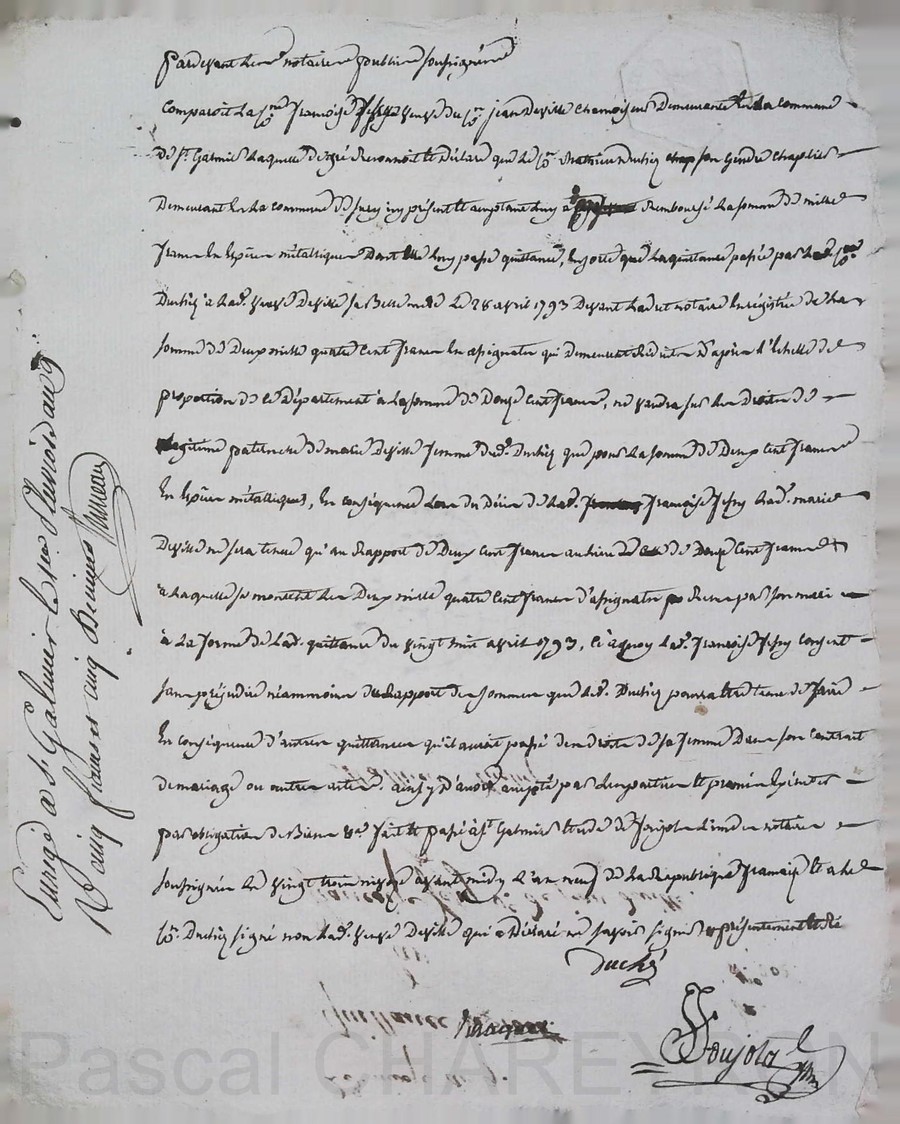 Pardevant les notaires publics soussignés
Comparoit la Cne françoise veuve du Cn jean Deville Chamoiseur Demeurante en la commune
De St Galmier laquelle de gré Reconnoit et Déclare que le Cn Mathieu Duchéz son Gendre Chapelier
Demeurant en la commune de Sury icy présent et acceptant luy a Remboursé la somme de mille
francs en Espèces métalliques Dont elle luy passe quittance, En sorte que la quittance passée par led. Cn
Duchéz à lad. veuve Deville sa Belle mere le 28 avril 1793 Devant led. notaire Enregistrée de la
somme de Deux mille quatre cent francs en assignats qui demeurent Réduits D'après l'échelle de
proportion de ce Département à la somme de Douze Cent francs, ne vaudra sur les Droits de
légitime paternels de marie Deville femme dud. Duchéz que pour la somme de Deux Cent francs
En Espèces métalliques, En conséquence lors du Décès de lad. françoise lad. marie
Deville ne sera tenue qu'au Rapport de Deux Cent francs au lieu de Douze Cent francs
à laquelle se montent les Deux mille quatre Cent francs d'assignats Reçus par son mari
à la forme de lad. quittance du vingt huit avril 1793, ce à quoy lad. françoise consent
sans préjudice néanmoins du Rapport des sommes que led. Duchéz pourra être tenu de faire
En conséquence d'autres quittances qu'il auroit passé des droits de sa femme Dans son Contrat
de mariage ou autres actes. Ainsy D'accord accepté par les parties et promis Exécuter
par obligation de Biens &a. fait et passé à St Galmier Etude de foujols l'un des notaires
soussignés le vingt trois nivose avant midy l'an neuf de la Republique française et a led.
Cn. Duchéz signé non lad. veuve Deville qui a Déclaré ne savoir signer
Duché
foujols
Enrégé a St Galmier le
Reçu francs cinq Decimes
Quittance
Pascal CHAREYRON